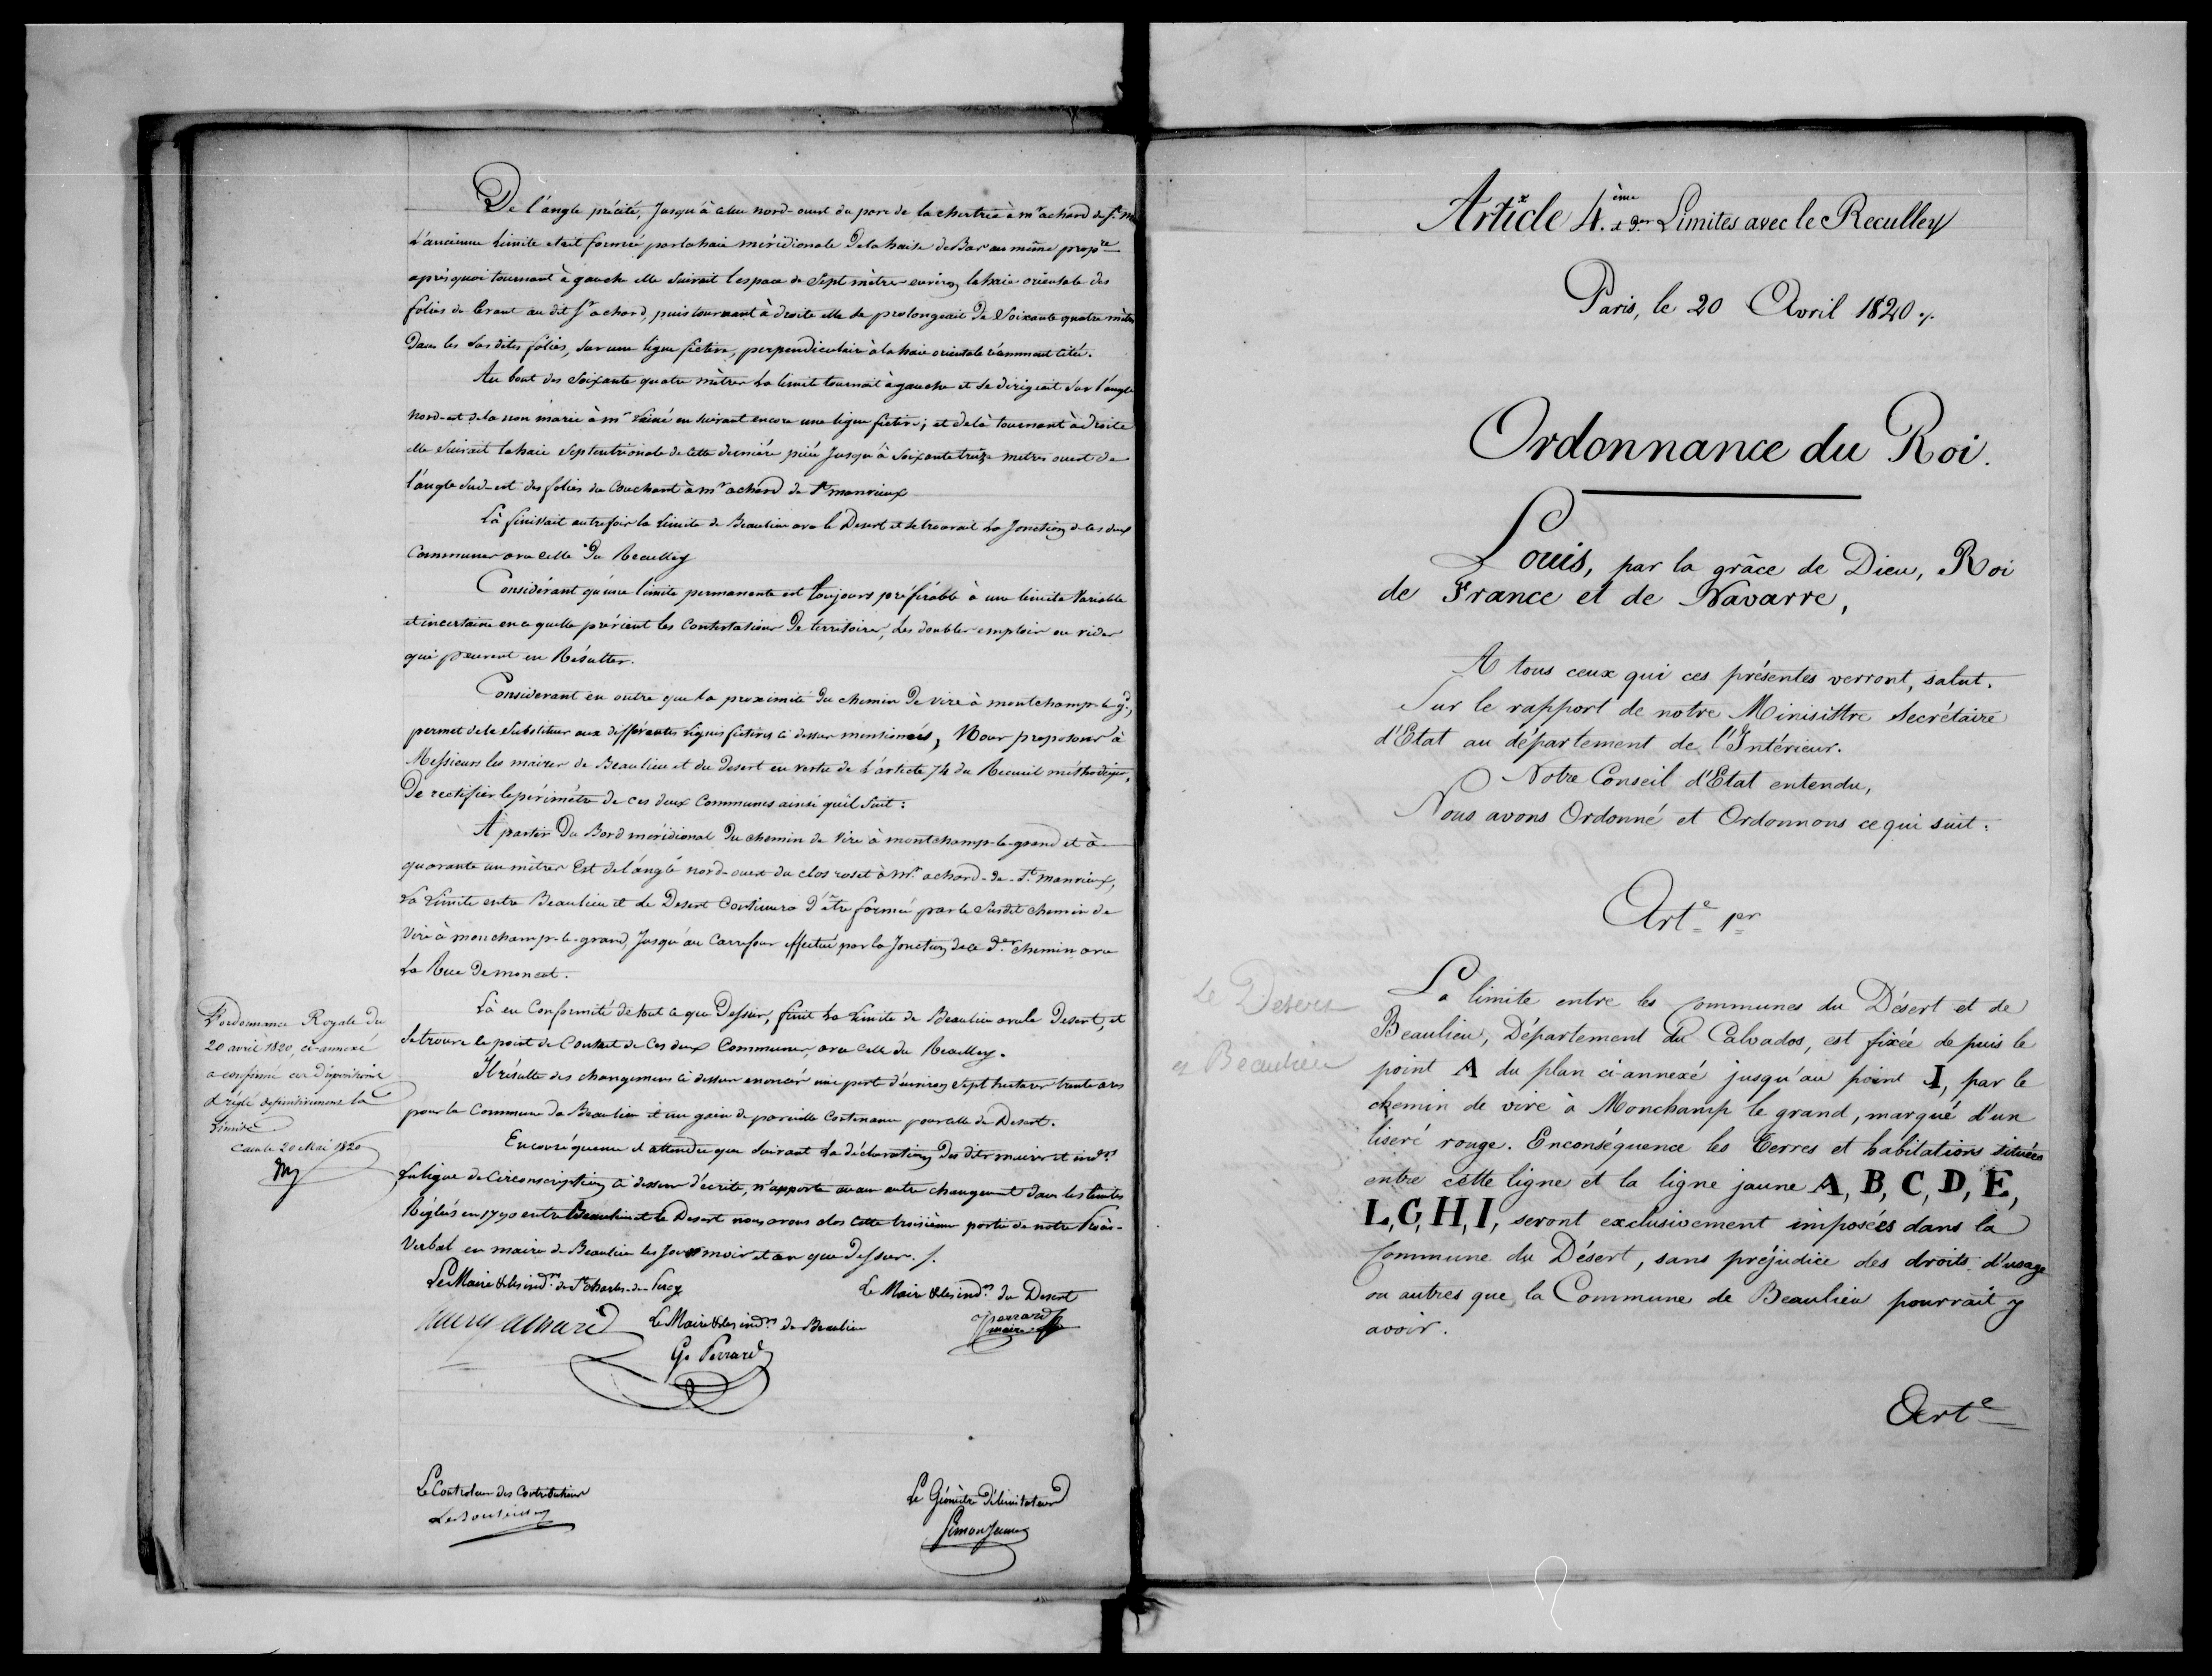 De l'angle précité, Jusqu'à celui nord-ouest du parc de la chertrie à mr achard de St
L'ancienne Limite etait formée par la haie méridionale De la haise de Bas au même propre
après quoi tournant à gauche elle Suivait l'espace de Sept mètres environ la haie orientale des
folies du levant au dit Sr achard, puis tournant à droite elle Se prolongeait De Soixante quatre mètres
Dans les Sus dites folies, Sur une ligne fictive, perpendiculaire à la haie orientale récemment citée.
Au bout des Soixante quatre mètres La limite tournait à gauche et Se dirigeait Sur l'angle
Nord-est de la non marie à mr en Suivant encore une ligne fictive; et de là tournant à droite
elle Suivait la haie Septentrionale de cette dernière pièce Jusqu'à Soixante treize metres ouest de
l'angle Sud-est des folies du Couchant à mr achard de St manvieux
Là finissait autrefois la Limite de Beaulieu avec le Desert et Se trouvait La Jonction de ces deux
Communes avec celle Du Reculley
Considérant qu'une limite permanente est toujours préférable à une limite Variable
et incertaine en ce quelle prévient les Contestations De territoires, Les doubles emplois ou vides
qui peuvent en Résulter.
Considerant en outre que la proximité Du chemin De Vire à montchamp-le-gd,
permet de le Substituer aux différentes lignes fictives ci dessus mentionnées, Nous proposons à
Messieurs les maires de Beaulieu et du Desert en vertu de L'article 74 du Recueil méthodique,
De rectifier le périmètre de ces deux Communes ainsi qu'il Suit :
A partir Du Bord méridional Du chemin de Vire à montchamp-le-grand et à
quarante un mètres Est de l'angle nord-ouest du clos roset à Mr. achard-de-St. manvieux,
La Limite entre Beaulieu et le Desert Continuera d'être formée par le Susdit chemin de
Vire à monchamp-le-grand, Jusqu'au Carrefour effectué par la Jonction de ce der chemin avec
La Rue De moncel.
Là en Conformité de tout ce que Dessus, finit La Limite de Beaulieu avec le Desert, et
Se trouve le point de Contact de Ces deux Communes, avec Celle du Reculley.
Il résulte des changemens ci dessus enoncés une perte d'environ Sept hectares trente ares
pour la Commune de Beaulieu et un gain de pareille Contenance pour celle du Desert.
En conséquence et attendu que Suivant La déclaration Des dits maires et indrs
La ligne de Circonscription ci dessus décrite, n'apporte aucun autre changement Dans les limites
Réglées en 1790 entre Beaulieu et le Desert nous avons clos Cette troisième partie de notre Procès-
Verbal en mairie de Beaulieu les Jour mois et an que Dessus. /.
L'ordonnance Royale du
20 avril 1820, ci-annexé
a confirmé ces dispositions
et réglé définitivement la
Limite
Caen le 20 Mai 1820
Le Maire & les indrs de St charles de Percy
Le Maire & les indrs du Desert
achard
Le Maire & les indrs de Beaulieu
maire
G. Perrard
Le Controleur Des Contributions
Le Géomètre Délimitateur
Simon Jeune
Article 4.ème et der Limites avec le Reculley
Paris, le 20 Avril 1820 ./.
Ordonnance du Roi.
Louis, par la grâce de Dieu, Roi
de France et de Navarre,
A tous ceux qui ces présentes verront, salut.
Sur le rapport de notre Minisistre Secrétaire
d'Etat au département de l'Intérieur.
Notre Conseil d'Etat entendu,
Nous avons Ordonné et Ordonnons ce qui suit :
Arte 1er
Le Desert
et Beaulieu
La limite entre les Communes du Désert et de
Beaulieu, Département du Calvados, est fixée depuis le
point A du plan ci-annexé jusqu'au point I, par le
chemin de vire à Monchamp le grand, marqué d'un
liseré rouge. Enconséquence les terres et habitations situées
entre cette ligne et la ligne jaune A, B, C, D, E,
L, G, H, I, seront exclusivement imposées dans la
Commune du Désert, sans préjudice des droits d'usage
ou autres que la Commune de Beaulieu pourrait y
avoir.
Arte